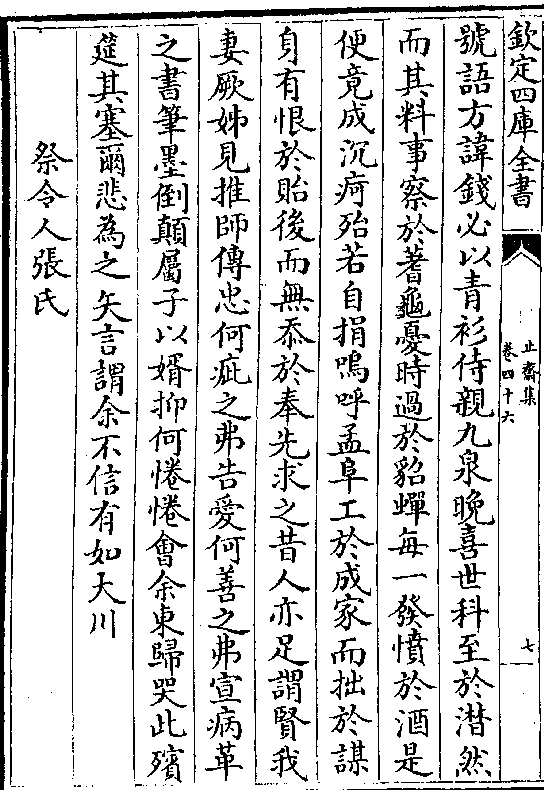 欽定四庫全書
止齋集
卷四十六
七
號語方諱錢必以青衫侍親九泉晚喜世科至於潸然
而其料事察於蓍龜憂時過於貂蟬每一發憤於酒是
便竟成沉疴殆若自捐嗚呼孟阜工於成家而拙於謀
身有恨於貽後而無忝於奉先求之昔人亦足謂賢我
妻厥姊見推師傅忠何疵之弗告愛何善之弗宣病革
之書筆墨倒顛屬子以婿抑何惓惓會余東歸哭此殯
筵其塞爾悲為之矢言謂余不信有如大川
祭令人張氏